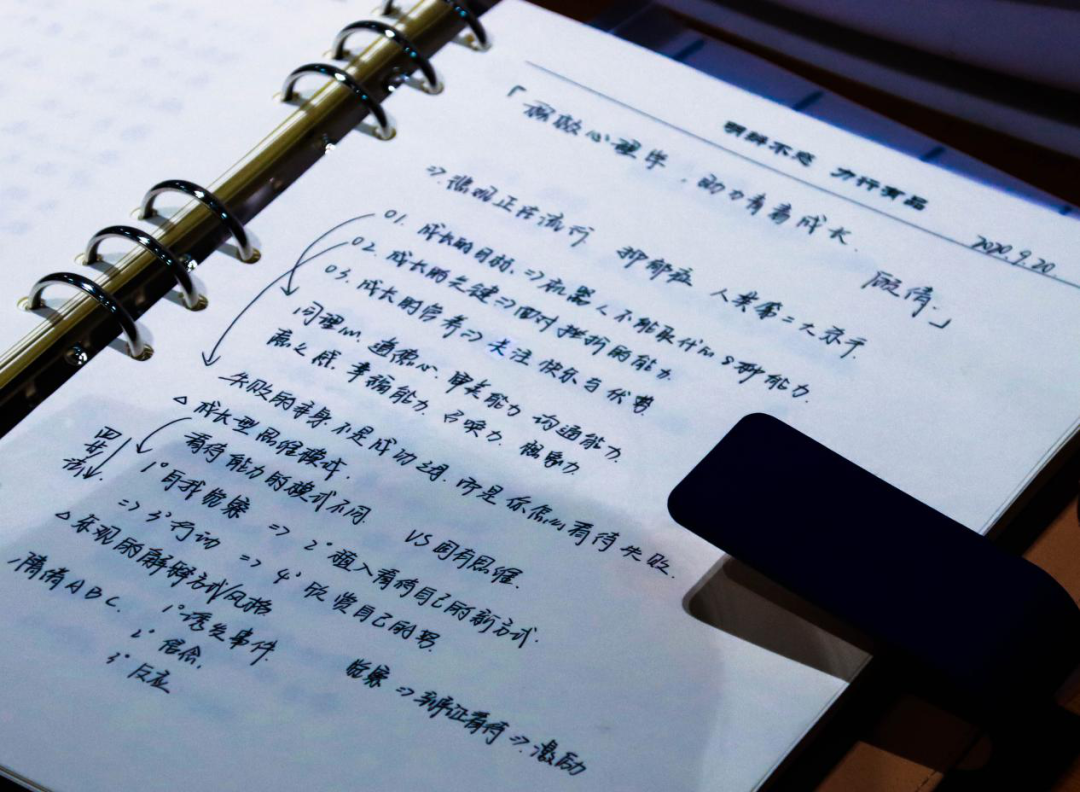 朝鲜不息 力行有品
2020.9.20
「积极心理学,助力青春成长.
顾倩.」
=> 悲观正在流行 抑郁症 人类第二大杀手.
01. 成长的目标. => 机器人不能取代的8种能力.
02. 成长的关键 => 面对挫折的能力.
03. 成长的营养 => 关注快乐与优势
同理心. 道德心. 审美能力 沟通能力.
意义感. 幸福能力. 召唤力. 想象力.
失败的本身. 不是成功之母. 而是你怎么看待失败.
△ 成长型思维模式. VS 固有思维.
看待能力的模式不同.
四步
法.
1° 自我觉察 => 2° 植入看待自己的新方式.
=> 3° 行动 => 4° 欣赏自己的努
△ 乐观的解释方式/风格
情绪ABC. 1° 诱发事件.
2° 信念.
3° 反应
觉察 => 辩证看待 => 激励